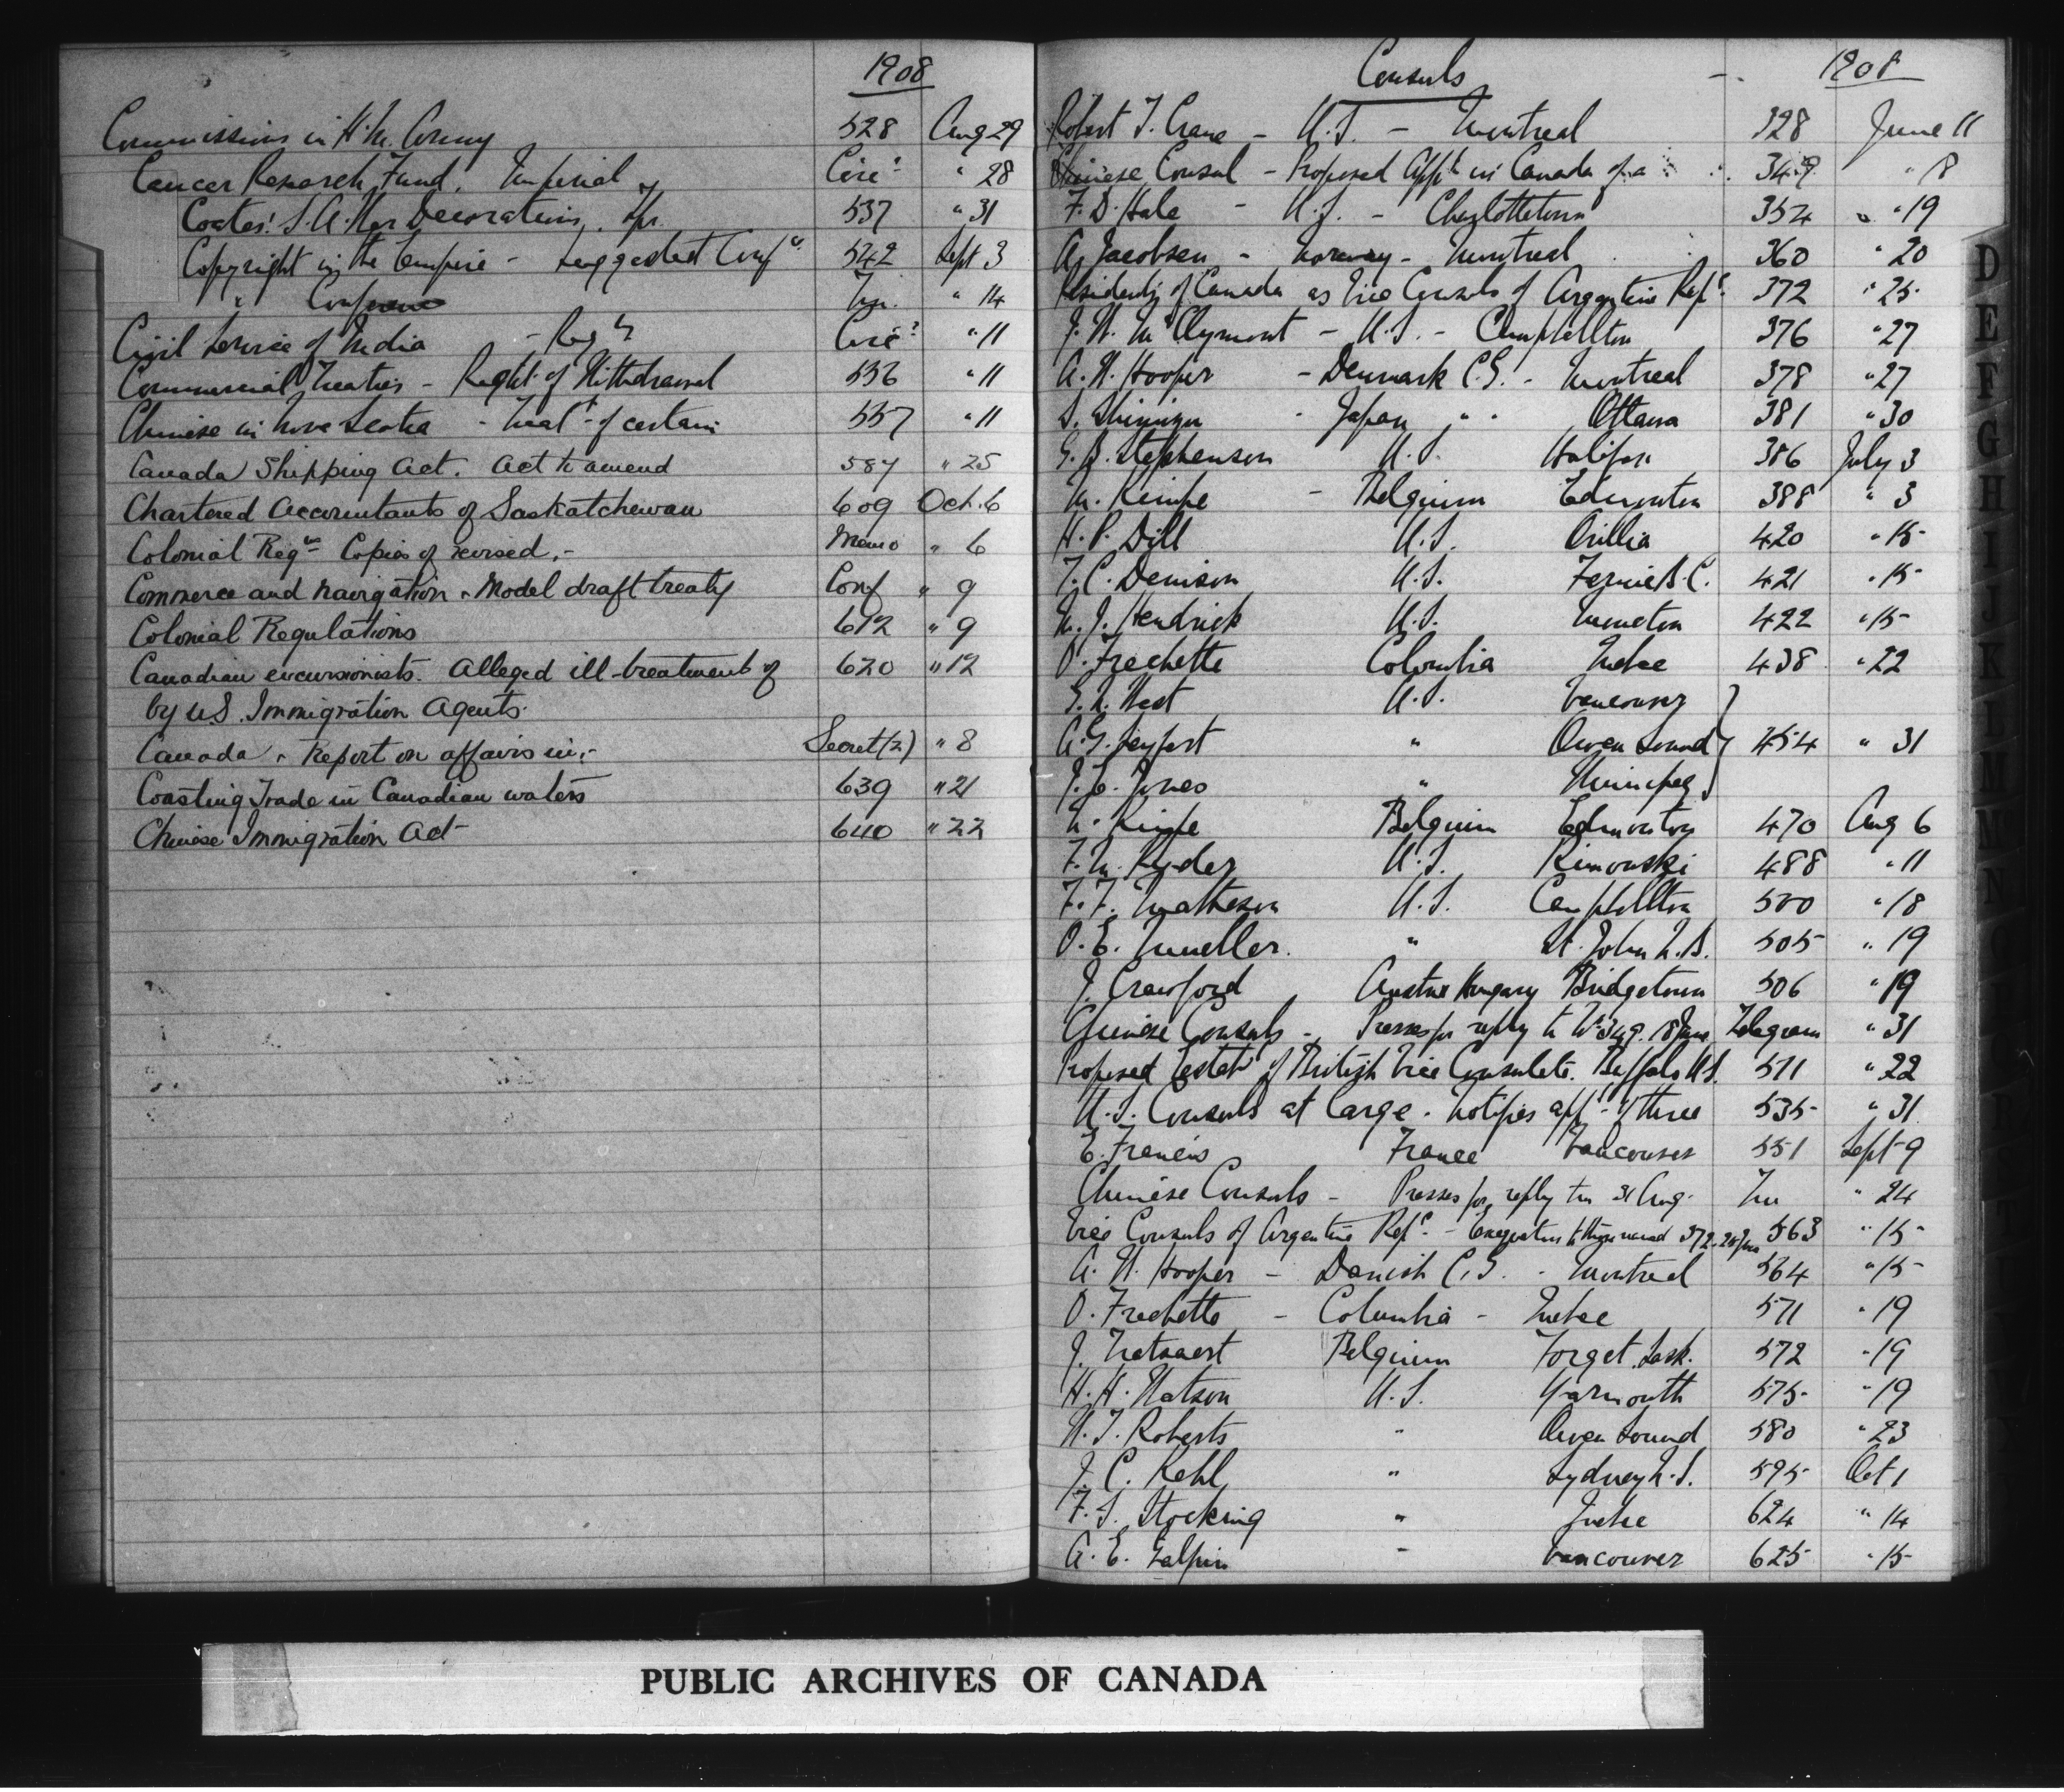 1908
Commissions in H.M. Army 528 Aug 29
Cancer Research Fund. Imperial Circ. " 28
Coates: S.A. War Decorations. Tpr. 537 " 31
Copyright in the Empire - Suggested Conf ce 542 Sept 3
" Conference Tm. " 14
Civil Service of India - Reg ns Circ. " 11
Commercial Treaties - Right of Withdrawal 556 " 11
Chinese in Nova Scotia - Treat t of certain 557 " 11
Canada Shipping Act. Act to amend 587 " 25
Chartered Accountants of Saskatchewan 609 Oct. 6
Colonial Reg ns Copies of revised.- Memo " 6
Commerce and Navigation - Model draft treaty Conf " 9
Colonial Regulations 612 " 9
Canadian excursionists. Alleged ill-treatment of 620 " 12
by U.S. Immigration Agents.
Canada - Report on affairs in.- Secret (2) " 8
Coasting Trade in Canadian waters 639 " 21
Chinese Immigration Act 640 " 22
Consuls 1908
Robert T. Crane - U.S. - Montreal 328 June 11
Chinese Consul - Proposed App t in Canada of a 349 " 18
F. D. Hale - U.S. - Charlottetown 354 " 19
A. Jacobsen - Norway - Montreal 360 " 20
Residents of Canada as Vice Consuls of Argentine Rep c. 372 " 25
J. W. McClymont - U.S. - Campbellton 376 " 27
A. W. Hooper - Denmark C.G. - Montreal 378 " 27
S. Shimizu - Japan " " Ottawa 381 " 30
G. B. Stephenson U.S. Halifax 386 July 3
M. Kimpe - Belgium Edmonton 388 " 3
H. P. Dill U.S. Orillia 420 " 15
F. C. Denison U.S. Fernie B.C. 421 " 15
M. J. Hendrick U.S. Moncton 422 " 15
O. Frechette Colombia Quebec 438 " 22
G. N. West U.S. Vancouver
A. G. Seyfert " Owen Sound 454 " 31
J. E. Jones " Winnipeg
M. Kimpe Belgium Edmonton 470 Aug 6
F. M. Ryder U.S. Rimouski 488 " 11
F. F. Matheson U.S. Campbellton 500 " 18
O. E. Mueller. " St. John N.B. 505 " 19
J. Crawford Austria Hungary Bridgetown 506 " 19
Chinese Consuls - Presses for reply to No 349. 18 June Telegram " 31
Proposed Estab t of British Vice Consulate. Buffalo U.S. 511 " 22
U.S. Consuls at large. Notifies app t of three 535 " 31
E. Francis France Vancouver 551 Sept 9
Chinese Consuls - Presses for reply tm 31 Aug. Tm " 24
Vice Consuls of Argentine Rep c. - Exequaturs to those named 372. 25 June 563 " 15
A. W. Hooper - Danish C.G. - Montreal 564 " 15
O. Frechette - Columbia - Quebec 571 " 19
J. Belgium Forget Sask. 572 " 19
H. H. Watson U.S. Yarmouth 575 " 19
W. T. Roberts " Owen Sound 580 " 23
J. C. Kehl " Sydney N.S. 595 Oct 1
F. S. Stocking " Quebec 624 " 14
A. E. Galpin " Vancouver 625 " 15
D
E
F
G
H
I
J
K
L
M
N
PUBLIC ARCHIVES OF CANADA